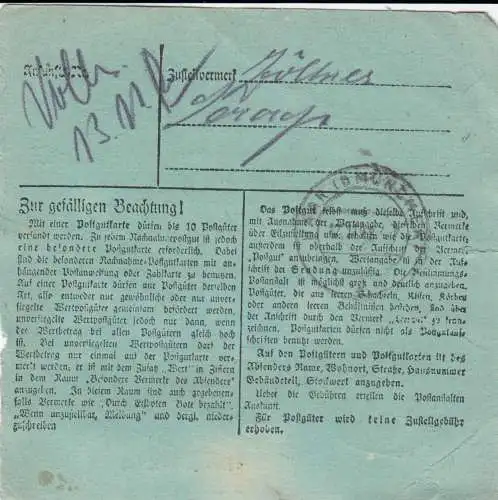 Zustellvermerk
Zur gefälligen Beachtung!
Mit einer Postgutkarte dürfen bis 10 Postgüter
versandt werden. Zu jedem Nachnahmepostgut ist jedoch
eine besondere Postgutkarte erforderlich. Dabei
sind die besonderen Nachnahme-Postgutkarten mit an-
hängender Postanweisung oder Zahlkarte zu benutzen.
Auf einer Postgutkarte dürfen nur Postgüter derselben
Art, also entweder nur gewöhnliche oder nur unver-
siegelte Wertpostgüter gemeinsam befördert werden,
unversiegelte Wertpostgüter jedoch nur dann, wenn
der Wertbetrag bei allen Postgütern gleich hoch
ist. Bei unversiegelten Wertpostgütern darf der
Wertbetrag nur einmal auf der Postgutkarte ver-
merkt werden, er ist mit dem Zusatz „Wert“ in Ziffern
in dem Raum „Besondere Vermerke des Absenders“
anzugeben. In diesem Raum sind auch gegebenen-
falls Vermerke wie „Durch Eilboten Bote bezahlt“,
„Wenn unzustellbar, Meldung“ und dergl. nieder-
zuschreiben
Das Postgut selbst muß dieselbe Aufschrift und,
mit Ausnahme der Wertangabe, dieselben Vermerke
über Eilzustellung usw. erhalten wie die Postgutkarte,
außerdem ist oberhalb der Aufschrift der Vermerk
„Postgut“ anzubringen. Wertangabe ist in der Auf-
schrift der Sendung unzulässig. Die Bestimmungs-
Postanstalt ist möglichst groß und deutlich anzugeben.
Postgüter, die aus leeren Schachteln, Kisten, Körben
oder andern leeren Behältnissen bestehen, sind über
der Anschrift durch den Vermerk „Leergut“ zu kenn-
zeichnen. Postgutkarten dürfen nicht als Postpaket
schriften benutzt werden.
Auf den Postgütern und Postgutkarten ist des
Absenders Name, Wohnort, Straße, Hausnummer
Gebäudeteil, Stockwerk anzugeben.
Ueber die Gebühren erteilen die Postanstalten
Auskunft.
Für Postgüter wird keine Zustellgebühr
erhoben.